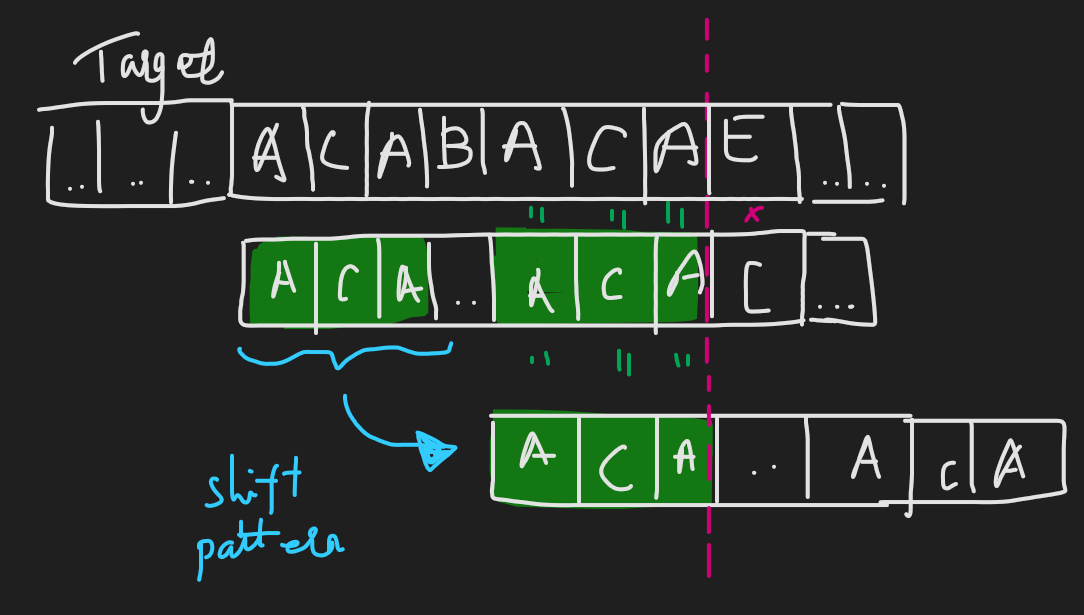 Target
.. .. .. A C A B A C A E .. ..
" " " x
A C A .. A C A C ...
" " "
A C A .. A c A
shift
pattern